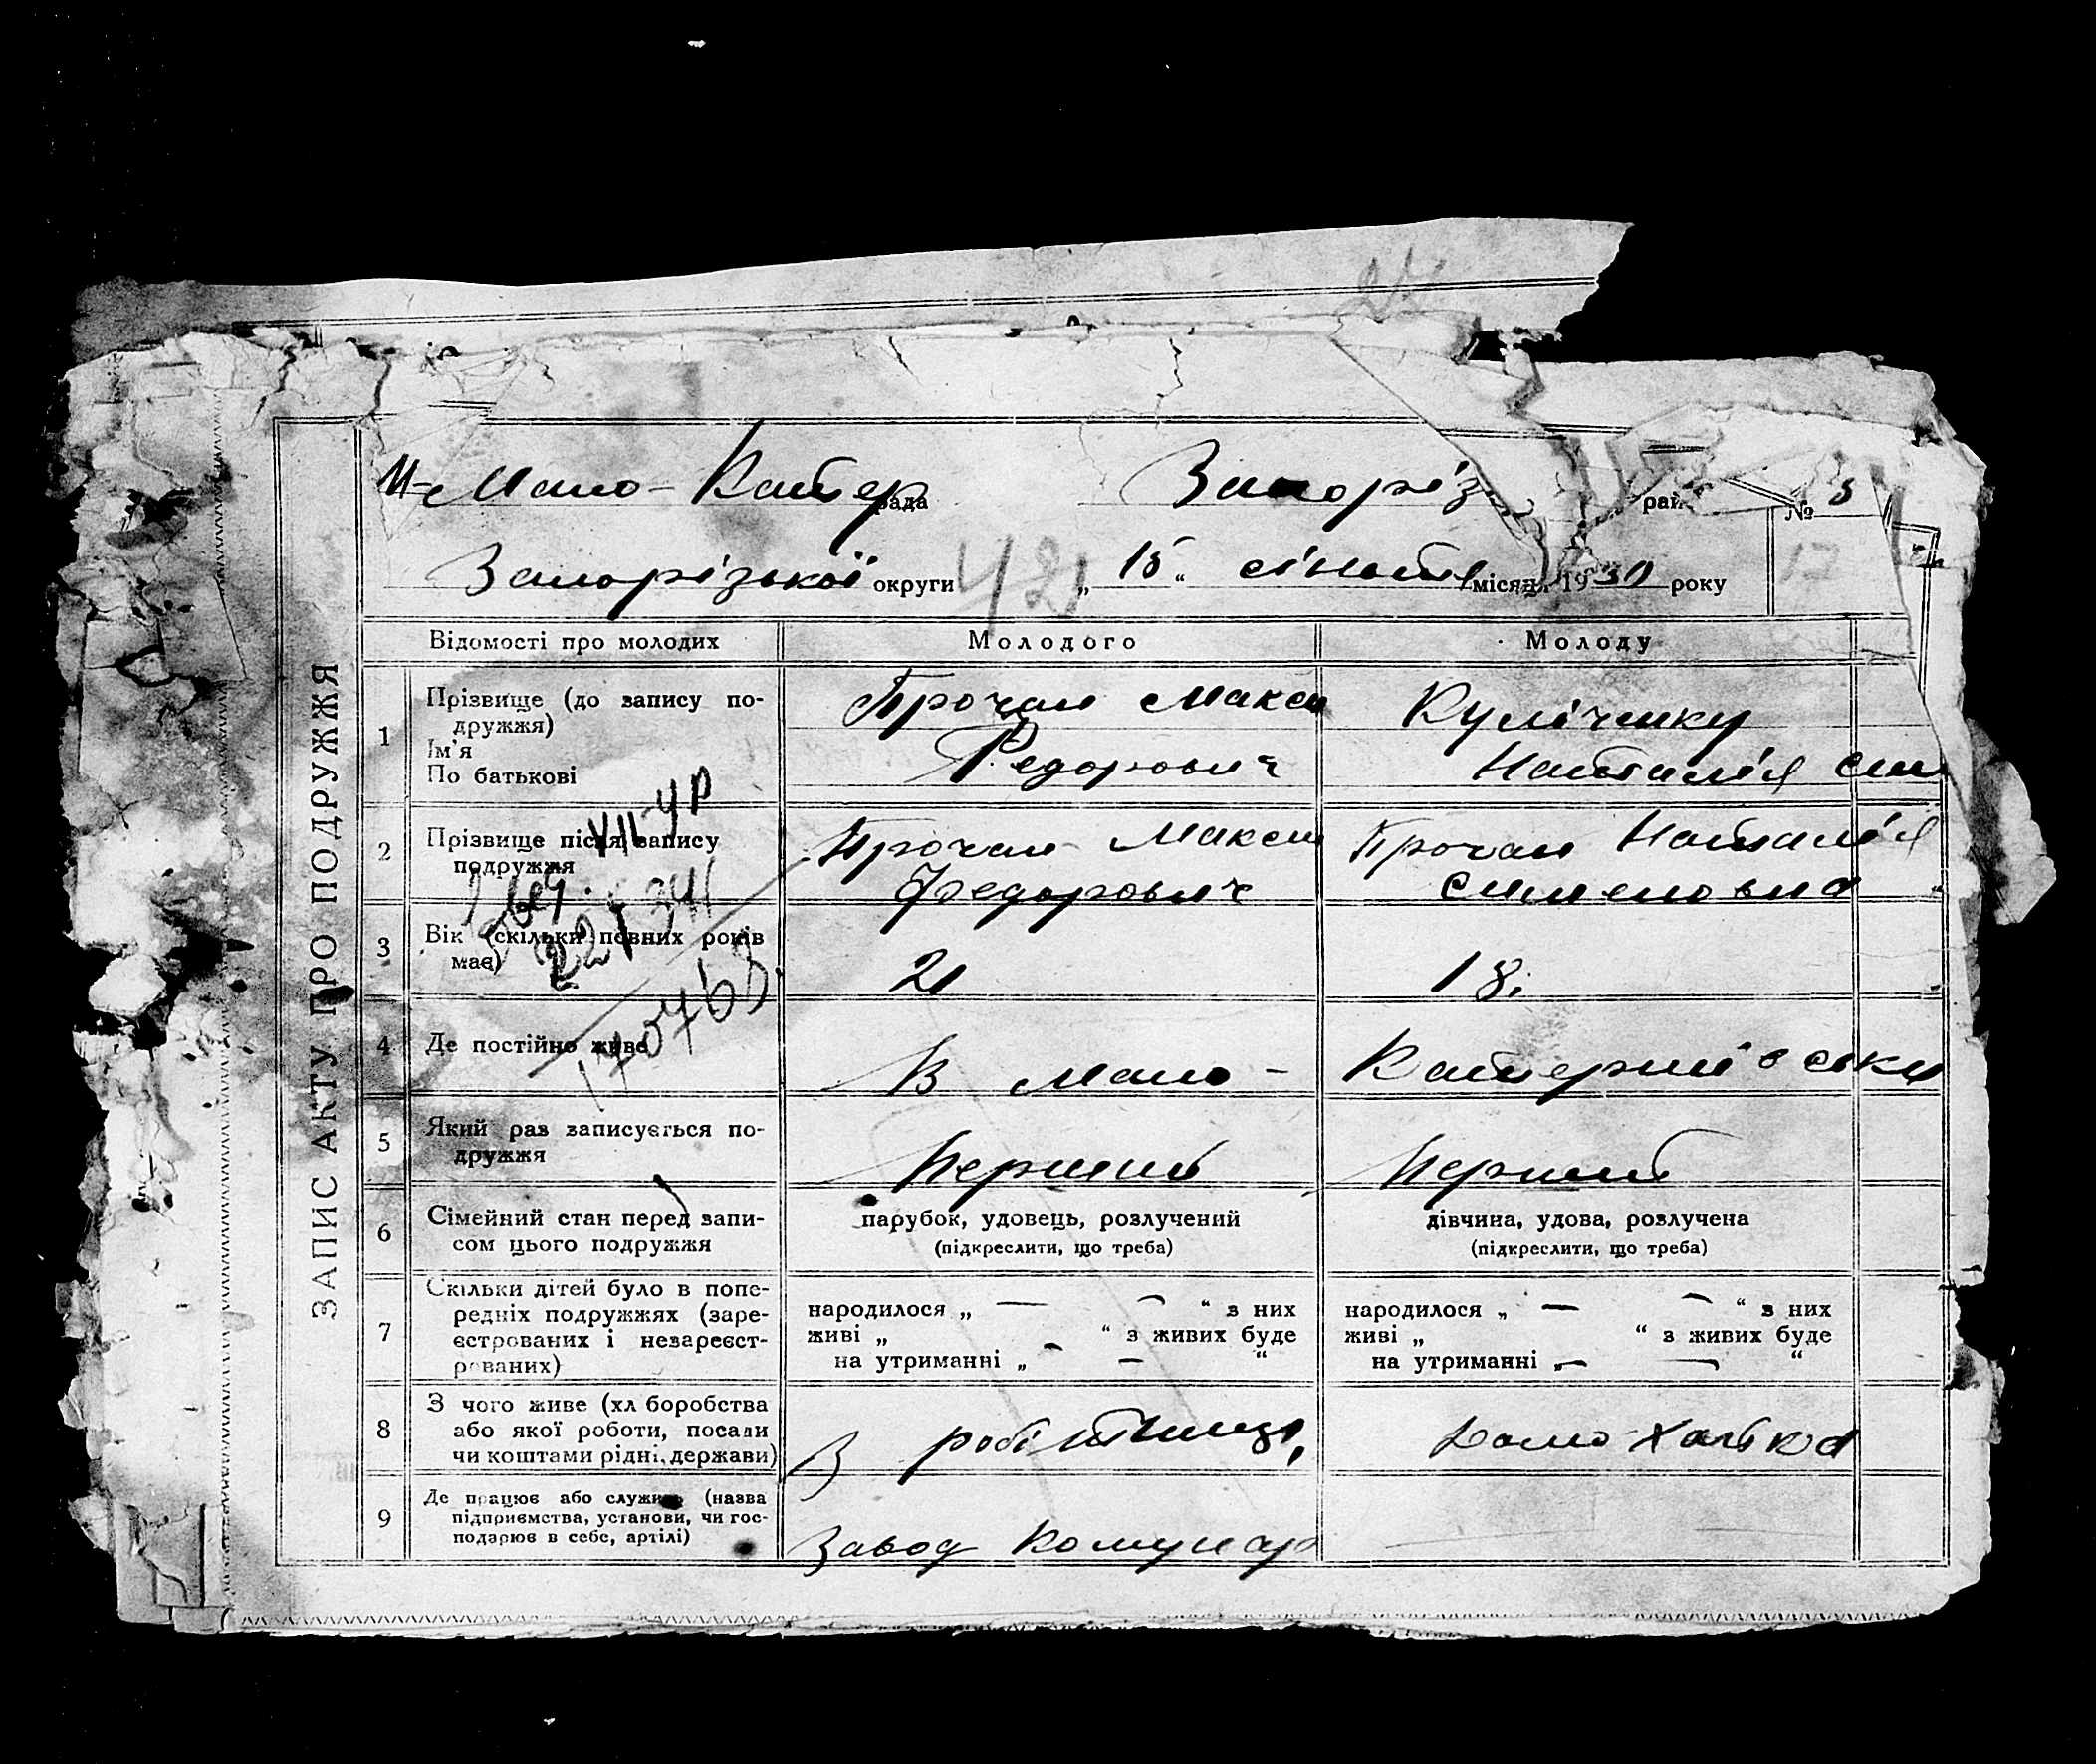 ЗАПИС АКТУ ПРО ПОДРУЖЖЯ
Н-Мало-Катер рада Запоріз рай № 8
Запорізької округи 421 „ 15 “ січня місяця 1930 року 17
Відомості про молодих Молодого Молоду
1 Прізвище (до запису по-
дружжя)
Ім'я
По батькові
Прочан Макси
Федорович
Кулічику
Наталія Сим
2 Прізвище після запису
подружжя
Прочан Максим
Федорович
Прочан Наталія
Сименовна
VII-УР
22/ 341
170768
3 Вік (скільки повних років
має)
21 18.
4 Де постійно живе В Мало- Катеринівськи
5 Який раз записується по-
дружжя
Перший Перший
6 Сімейний стан перед запи-
сом цього подружжя
парубок, удовець, розлучений
(підкреслити, що треба)
дівчина, удова, розлучена
(підкреслити, що треба)
7 Скільки дітей було в попе-
редніх подружжях (заре-
єстрованих і незареєст-
рованих)
народилося „ — — “ з них
живі „ “ з живих буде
на утриманні „ — — “
народилося „ — — “ з них
живі „ “ з живих буде
на утриманні „ — — “
8 З чого живе (хл боробства
або якої роботи, посади
чи коштами рідні, держави)
З робітниц. Домо-хазька
9 Де працює або служить (назва
підприємства, установи, чи гос-
подарює в себе, артілі)
Завод Комунар